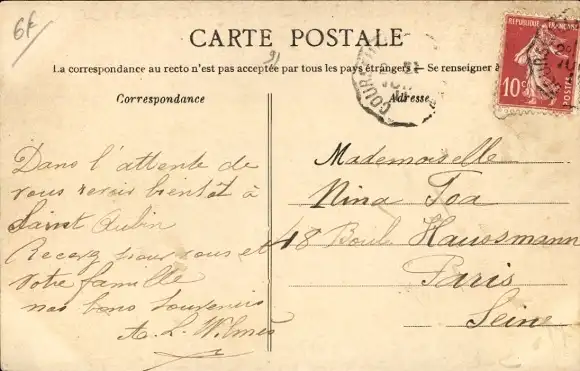 6f
CARTE POSTALE
91
La correspondance au recto n'est pas acceptée par tous les pays étrangers — Se renseigner à
Correspondance
Adresse
REPUBLIQUE FRANÇAISE
10c
COURS
Dans l'attente de
vous revoir bientôt à
Saint Aubin
Recevez pour vous et
votre famille
nos bons souvenirs
A. L. Wilmes
Mademoiselle
Nina Toa
48 Boul. Haussmann
Paris
Seine